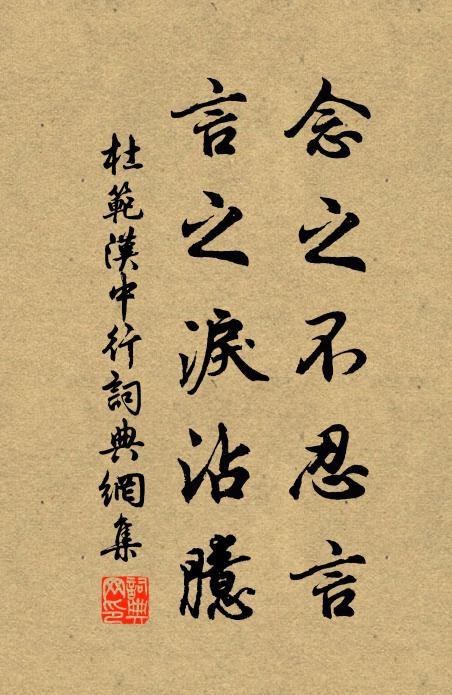 念之不忍言
言之淚沾臆
杜範漢中行詞典網集
詞典网印